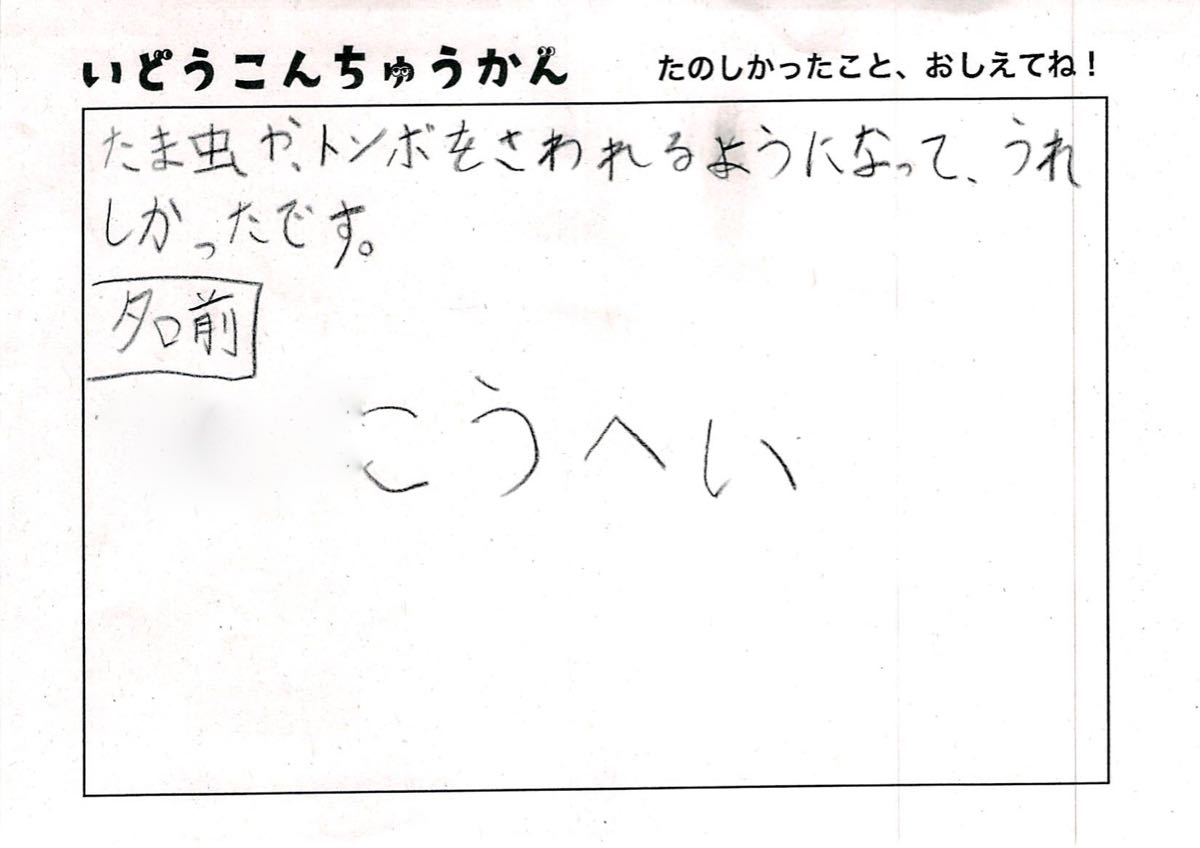 いどうこんちゅうかん
たのしかったこと、おしえてね！
たま虫や、トンボをさわれるようになって、うれ
しかったです。
名前
こうへい